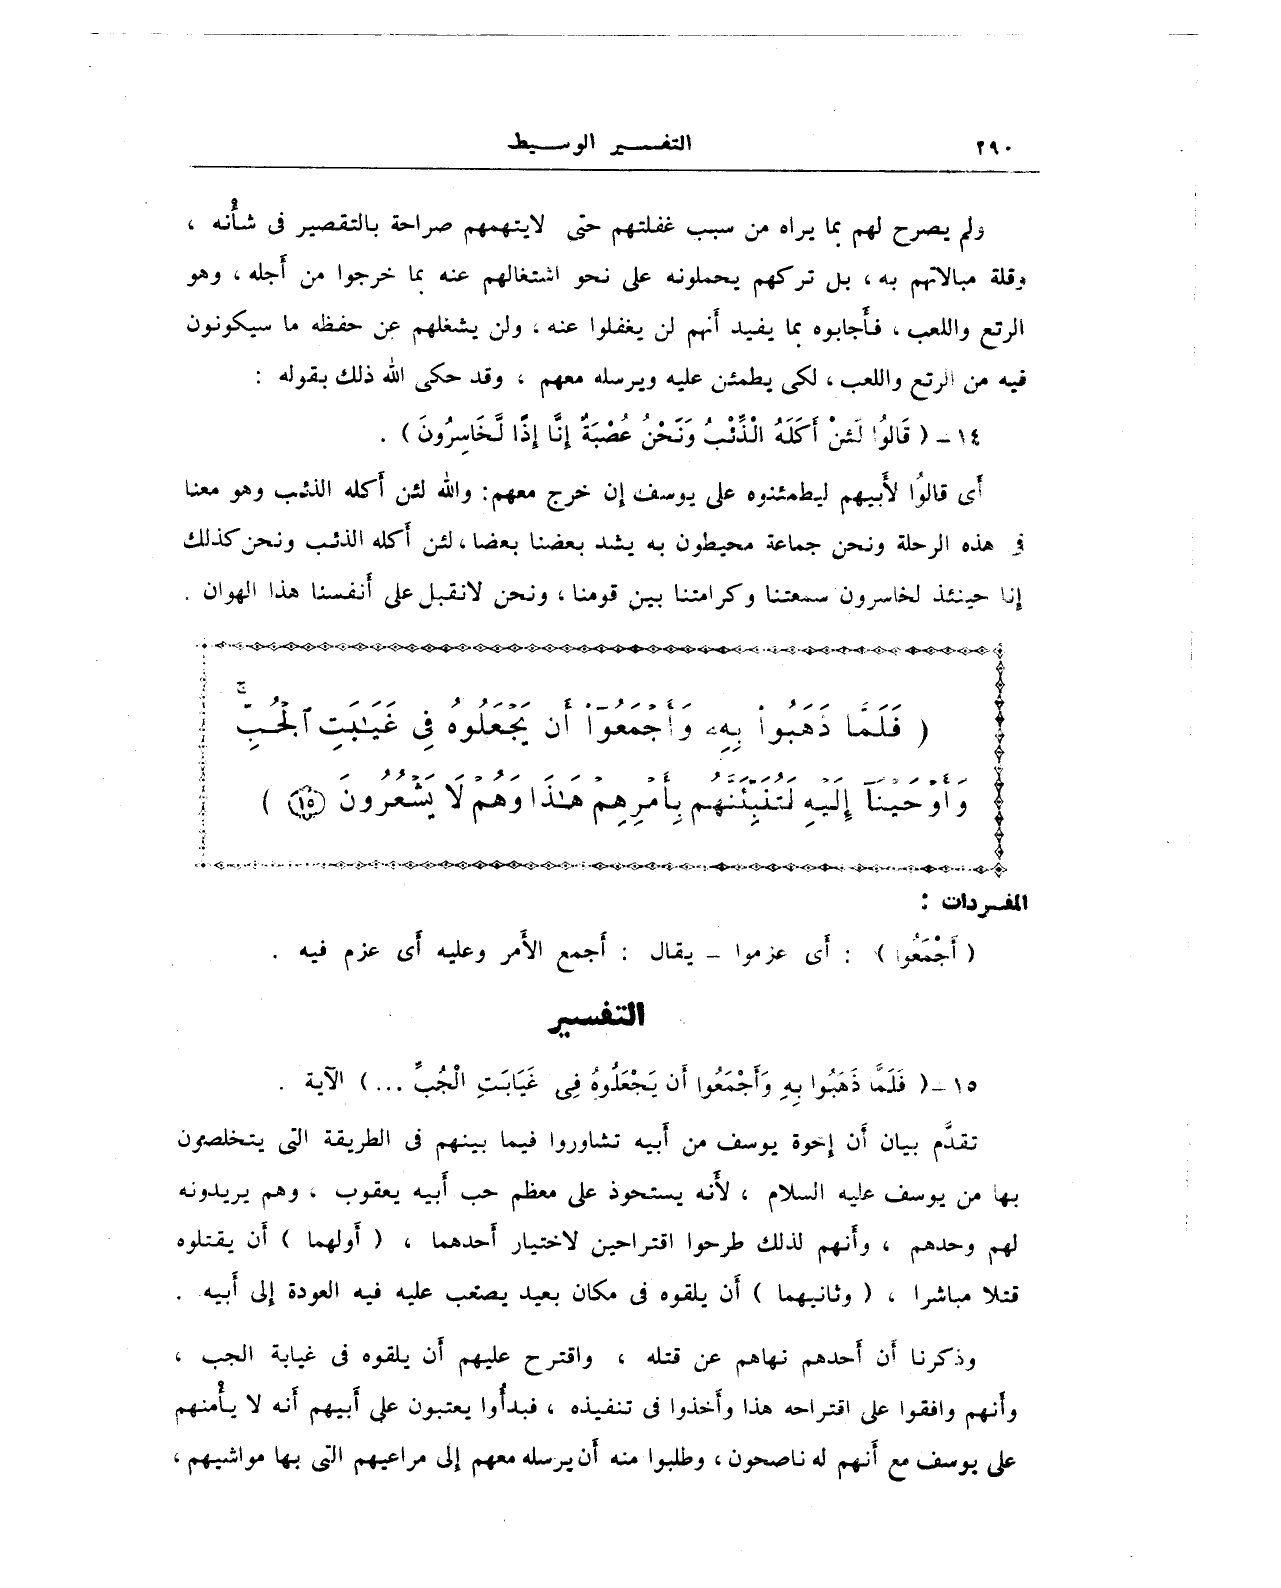 ٢٩٠
التفسير الوسيط
ولم يصرح لهم بما يراه من سبب غفلتهم حتى لايتهمهم صراحة بالتقصير فى شأْنه ،
وقلة مبالاتهم به ، بل تركهم يحملونه على نحو اشتغالهم عنه بما خرجوا من أَجله ، وهو
الرتع واللعب ، فأَجابوه بما يفيد أَنهم لن يغفلوا عنه ، ولن يشغلهم عن حفظه ما سيكونون
فيه من الرتع واللعب ، لكى يطمئن عليه ويرسله معهم ، وقد حكى الله ذلك بقوله :
١٤ – ( قَالُوا لَئِنْ أَكَلَهُ الْذِّئْبُ وَنَحْنُ عُصْبَةٌ إِنَّا إِذًا لَّخَاسِرُونَ ) .
أَى قالوا لأَبيهم ليطمئنوه على يوسف إن خرج معهم : والله لئن أكله الذئب وهو معنا
فى هذه الرحلة ونحن جماعة محيطون به يشد بعضنا بعضا ، لئن أَكله الذئب ونحن كذلك
إنا حينئذ لخاسرون سمعتنا وكرامتنا بين قومنا ، ونحن لانقبل على أَنفسنا هذا الهوان .
( فَلَمَّا ذَهَبُوا۟ بِهِۦ وَأَجْمَعُوٓا۟ أَن يَجْعَلُوهُ فِى غَيَـٰبَتِ ٱلْجُبِّ ۚ
وَأَوْحَيْنَآ إِلَيْهِ لَتُنَبِّئَنَّهُم بِأَمْرِهِمْ هَـٰذَا وَهُمْ لَا يَشْعُرُونَ ⑮ )
المفردات :
( أَجْمَعُوا ) : أَى عزموا – يقال : أَجمع الأَمر وعليه أَى عزم فيه .
التفسير
١٥ – ( فَلَمَّا ذَهَبُوا بِهِ وَأَجْمَعُوا أَن يَجْعَلُوهُ فِى غَيَابَتِ الْجُبِّ ... ) الآية .
تقدَّم بيان أَن إخوة يوسف من أَبيه تشاوروا فيما بينهم فى الطريقة التى يتخلصون
بها من يوسف عليه السلام ، لأَنه يستحوذ على معظم حب أَبيه يعقوب ، وهم يريدونه
لهم وحدهم ، وأَنهم لذلك طرحوا اقتراحين لاختيار أَحدهما ، ( أَولهما ) أَن يقتلوه
قتلا مباشرا ، ( وثانيهما ) أَن يلقوه فى مكان بعيد يصعب عليه فيه العودة إلى أَبيه .
وذكرنا أَن أَحدهم نهاهم عن قتله ، واقترح عليهم أَن يلقوه فى غيابة الجب ،
وأَنهم وافقوا على اقتراحه هذا وأَخذوا فى تنفيذه ، فبدأُوا يعتبون على أَبيهم أَنه لا يأْمنهم
على يوسف مع أَنهم له ناصحون ، وطلبوا منه أَن يرسله معهم إلى مراعيهم التى بها مواشيهم ،